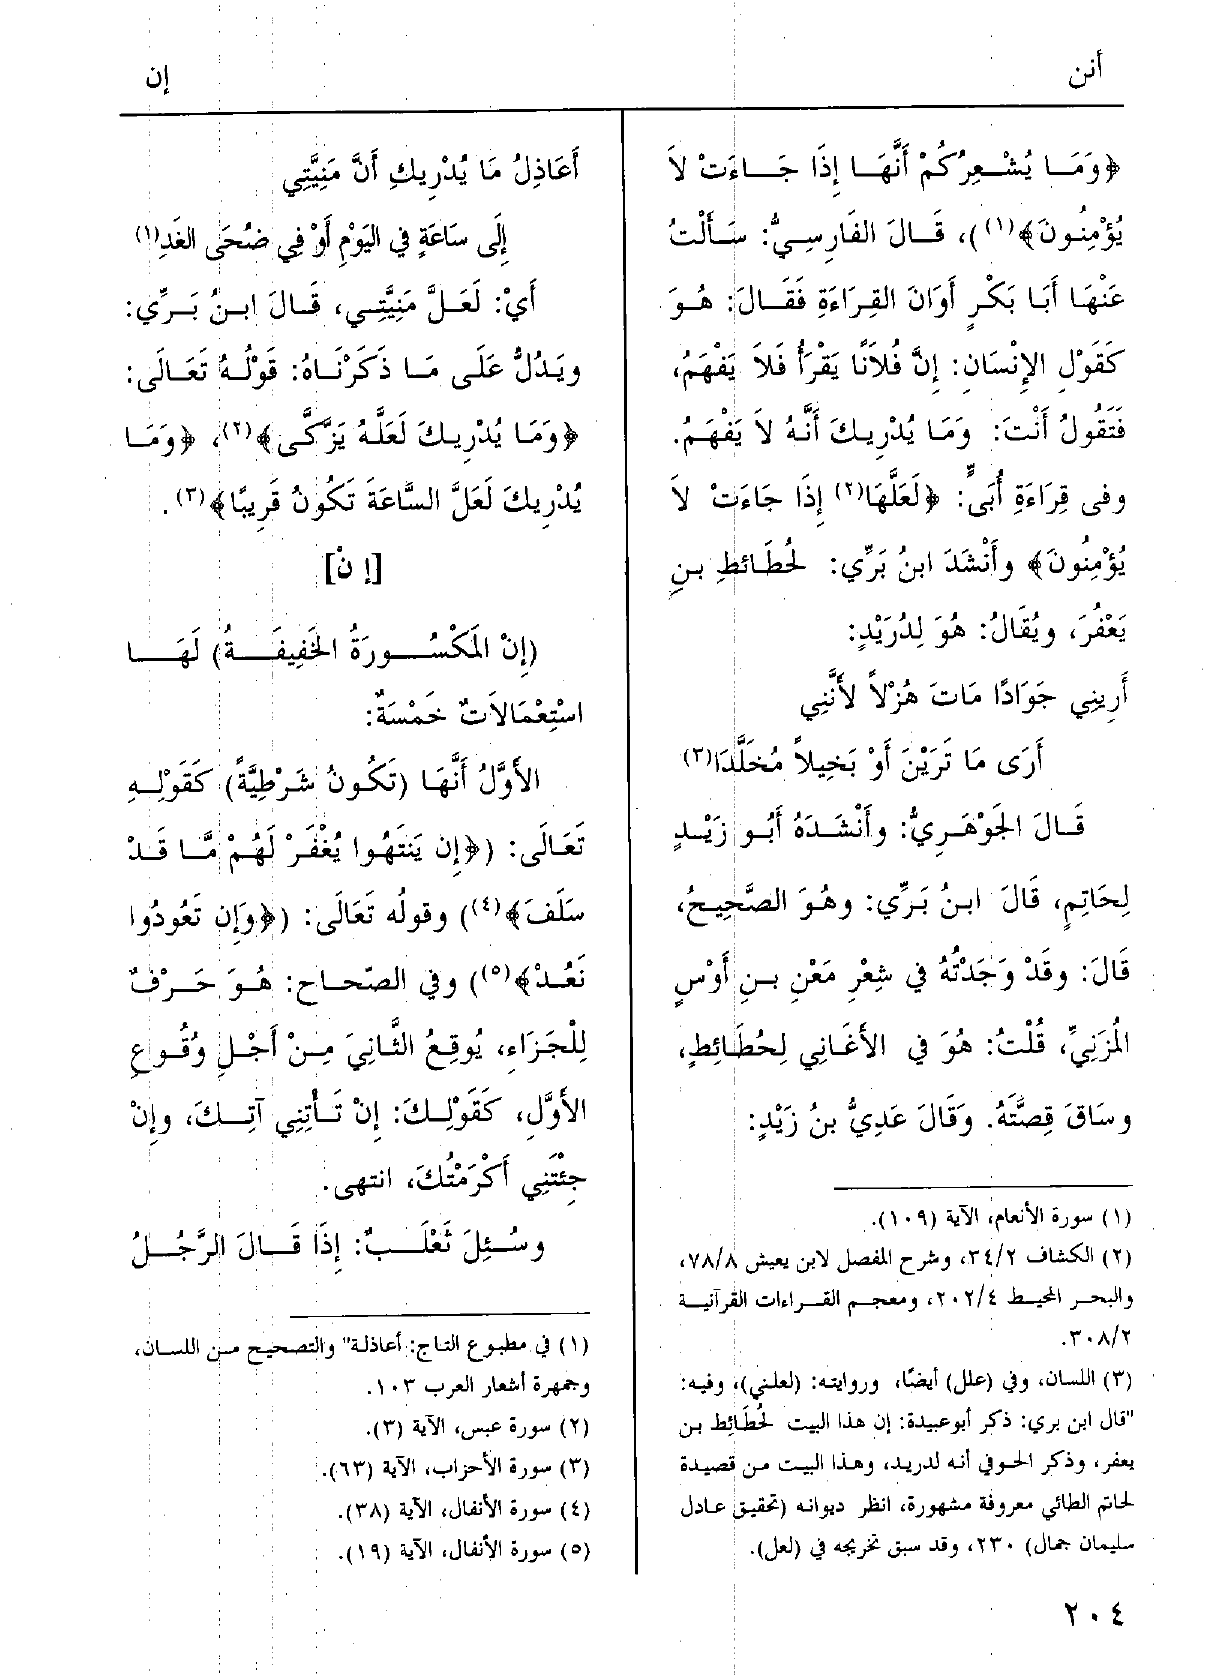 أنن
إن
﴿وَمَا يُشْعِرُكُمْ أَنَّهَا إِذَا جَاءَتْ لاَ
يُؤْمِنُونَ﴾(١))، قَالَ الفَارِسِيُّ: سَأَلْتُ
عَنْهَا أَبَا بَكْرٍ أَوَانَ القِرَاءَةِ فَقَالَ: هُوَ
كَقَوْلِ الإِنْسَانِ: إِنَّ فُلاَنًا يَقْرَأُ فَلاَ يَفْهَمُ،
فَتَقُولُ أَنْتَ: وَمَا يُدْرِيكَ أَنَّهُ لاَ يَفْهَمُ.
وفى قِرَاءَةِ أُبَىٍّ: ﴿لَعَلَّهَا(٢) إِذَا جَاءَتْ لاَ
يُؤْمِنُونَ﴾ وأَنْشَدَ ابنُ بَرِّي: لحُطَائطِ بنِ
يَعْفُرَ، ويُقَالُ: هُوَ لِدُرَيْدٍ:
أَرِينِي جَوَادًا مَاتَ هُزْلاً لأَنَّنِي
أَرَى مَا تَرَيْنَ أَوْ بَخِيلاً مُخَلَّدَا(٣)
قَالَ الجَوْهَرِيُّ: وأَنْشَدَهُ أَبُو زَيْدٍ
لِحَاتِمٍ، قَالَ ابنُ بَرِّي: وهُوَ الصَّحِيحُ،
قَالَ: وقَدْ وَجَدْتُهُ فِي شِعْرِ مَعْنِ بنِ أَوْسٍ
المُزَنِيِّ، قُلْتُ: هُوَ فِي الأَغَانِي لِحُطَائطٍ،
وسَاقَ قِصَّتَهُ. وَقَالَ عَدِيُّ بنُ زَيْدٍ:
(١) سورة الأنعام، الآية (١٠٩).
(٢) الكشاف ٣٤/٢، وشرح المفصل لابن يعيش ٧٨/٨،
والبحر المحيط ٢٠٢/٤، ومعجم القراءات القرآنية
٣٠٨/٢.
(٣) اللسان، وفي (علل) أيضًا، وروايته: (لعلني)، وفيه:
"قال ابن بري: ذكر أبوعبيدة: إن هذا البيت لحُطَائِط بن
يعفر، وذكر الحوفي أنه لدريد، وهذا البيت من قصيدة
لحاتم الطائي معروفة مشهورة، انظر ديوانه (تحقيق عادل
سليمان جمال) ٢٣٠، وقد سبق تخريجه في (لعل).
أَعَاذِلُ مَا يُدْرِيكِ أَنَّ مَنِيَّتِي
إِلَى سَاعَةٍ فِي اليَوْمِ أَوْ فِي ضُحَى الغَدِ(١)
أَيْ: لَعَلَّ مَنِيَّتِي، قَالَ ابنُ بَرِّي:
ويَدُلُّ عَلَى مَا ذَكَرْنَاهُ: قَوْلُهُ تَعَالَى:
﴿وَمَا يُدْرِيكَ لَعَلَّهُ يَزَّكَّى﴾(٢)، ﴿وَمَا
يُدْرِيكَ لَعَلَّ السَّاعَةَ تَكُونُ قَرِيبًا﴾(٣).
[إ نْ]
(إِنْ المَكْسُورَةُ الخَفِيفَةُ) لَهَا
اسْتِعْمَالاَتٌ خَمْسَةٌ:
الأَوَّلُ أَنَّهَا (تَكُونُ شَرْطِيَّةً) كَقَوْلِهِ
تَعَالَى: (﴿إِن يَنتَهُوا يُغْفَرْ لَهُمْ مَّا قَدْ
سَلَفَ﴾(٤)) وقولُه تَعَالَى: (﴿وَإِن تَعُودُوا
نَعُدْ﴾(٥)) وفي الصّحاح: هُوَ حَرْفٌ
لِلْجَزَاءِ، يُوقِعُ الثَّانِيَ مِنْ أَجْلِ وُقُوعِ
الأَوَّلِ، كَقَوْلِكَ: إِنْ تَأْتِنِي آتِكَ، وإِنْ
جِئْتَنِي أَكْرَمْتُكَ، انتهى.
وسُئِلَ ثَعْلَبٌ: إِذَا قَالَ الرَّجُلُ
(١) في مطبوع التاج: أعاذلة" والتصحيح من اللسان،
وجمهرة أشعار العرب ١٠٣.
(٢) سورة عبس، الآية (٣).
(٣) سورة الأحزاب، الآية (٦٣).
(٤) سورة الأنفال، الآية (٣٨).
(٥) سورة الأنفال، الآية (١٩).
٢٠٤